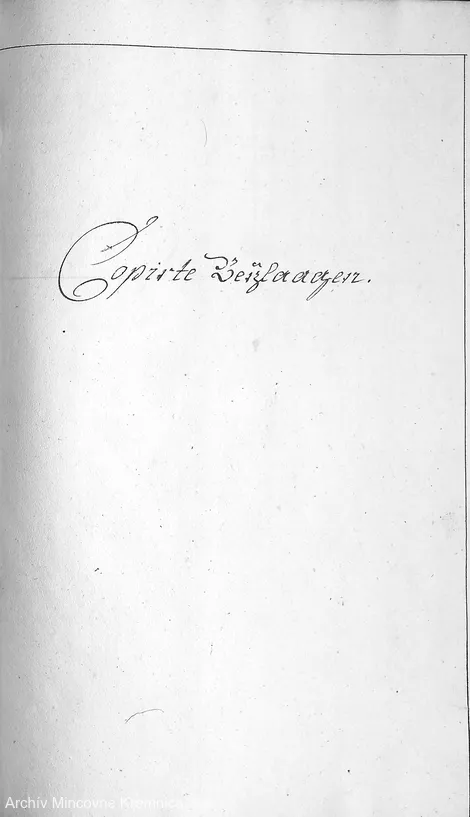 Copirte Beÿlaagen.
Archiv Mincovne Kremnica